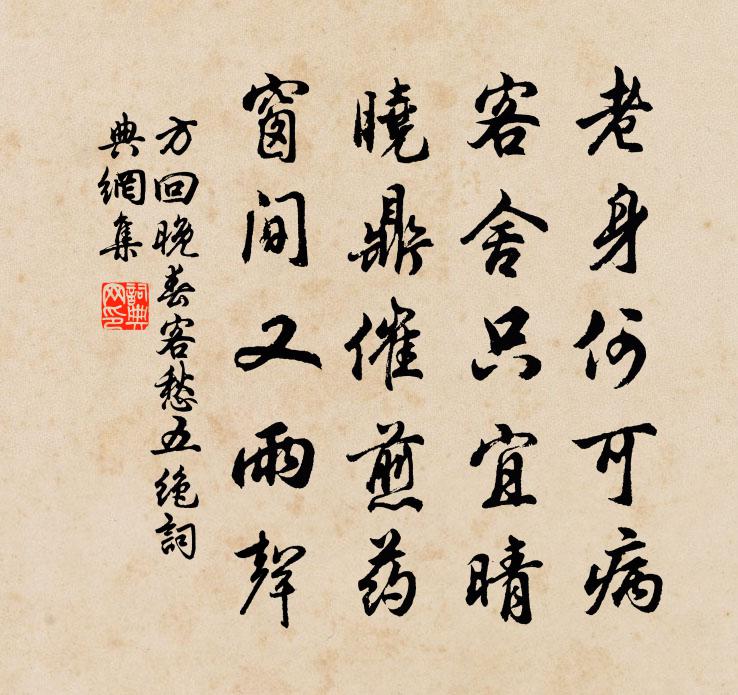 老身何可病
客舍只宜晴
曉鼎催煎药
窗间又雨聲
方回晚春客愁五绝詞
典網集
詞典网印